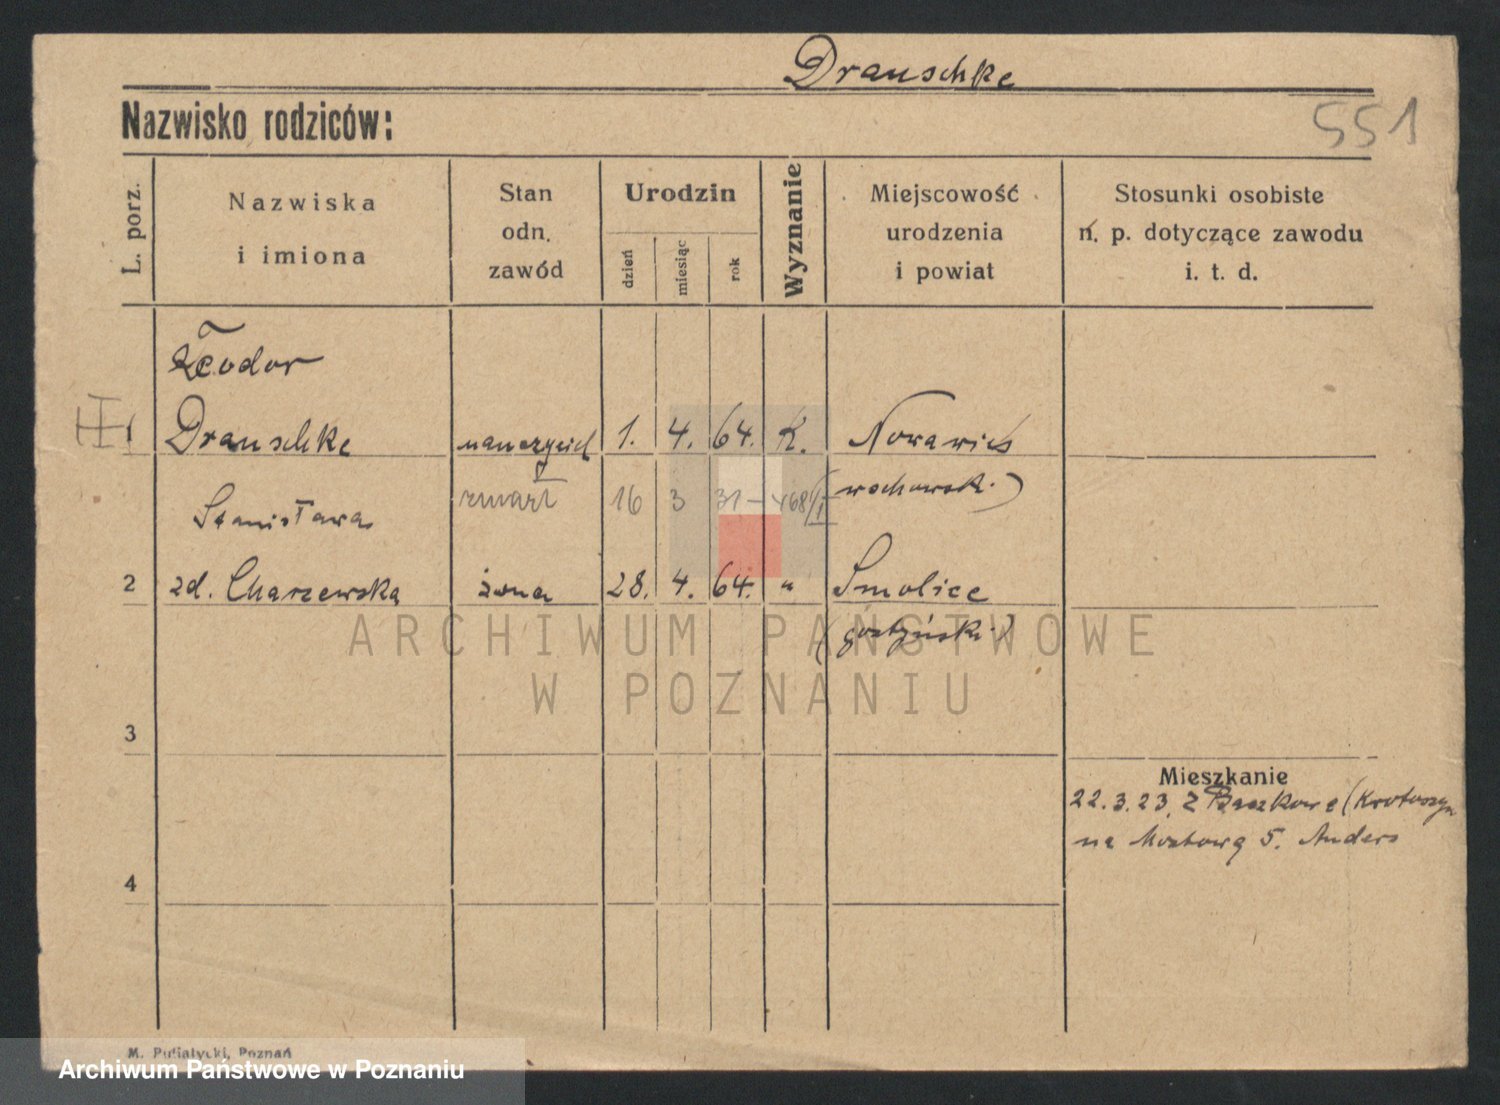 Drauschke
Nazwisko rodziców:
551
L. porz.
Nazwiska
i imiona
Stan
odn.
zawód
Urodzin
dzień
miesiąc
rok
Wyznanie
Miejscowość
urodzenia
i powiat
Stosunki osobiste
n. p. dotyczące zawodu
i. t. d.
Teodor
1 Drauschke 1. 4. 64. K. Nowawieś
zmarł 16 3 31 – 468/I wschowsk.)
Stanisława
2 zd. Charzewska żona 28. 4. 64. " Smolice
(gostyński)
ARCHIWUM PAŃSTWOWE
W POZNANIU
3
Mieszkanie
22.3.23. z Baszkowa (Krotoszyn
na Mostową 5. Anders
4
M. Putiatycki, Poznań
Archiwum Państwowe w Poznaniu